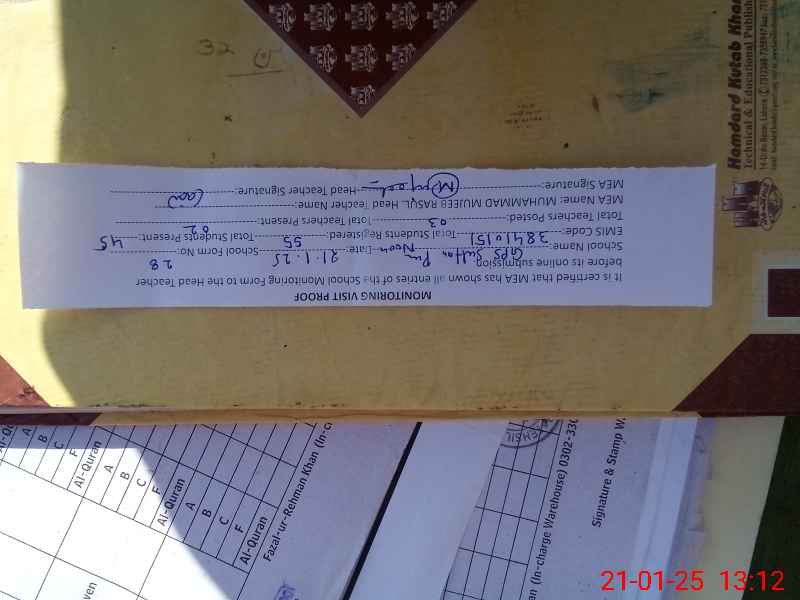 MONITORING VISIT PROOF
It is certified that MEA has shown all entries of the School Monitoring Form to the Head Teacher
before its online submission.
School Name: GPS Sultan Pur Noon Date: 21.1.25 School Form No. 28
EMIS Code: 38410151 Total Students Registered: 55 Total Students Present: 45
Total Teachers Posted: 03 Total Teachers Present: 02
MEA Name: MUHAMMAD MUJEEB RASUL Head Teacher Name:
MEA Signature: Head Teacher Signature:
32
Hamdard Kutab Khana
Technical & Educational Publish
Al-Quran
A
B
C
F
Al-Quran
A
B
C
F
Al-Quran
A
B
C
F
Al-Quran
Fazal-ur-Rehman Khan (In-c
ven
TEHSIL
an (In-charge Warehouse) 0302-330
Signature & Stamp W
21-01-25 13:12